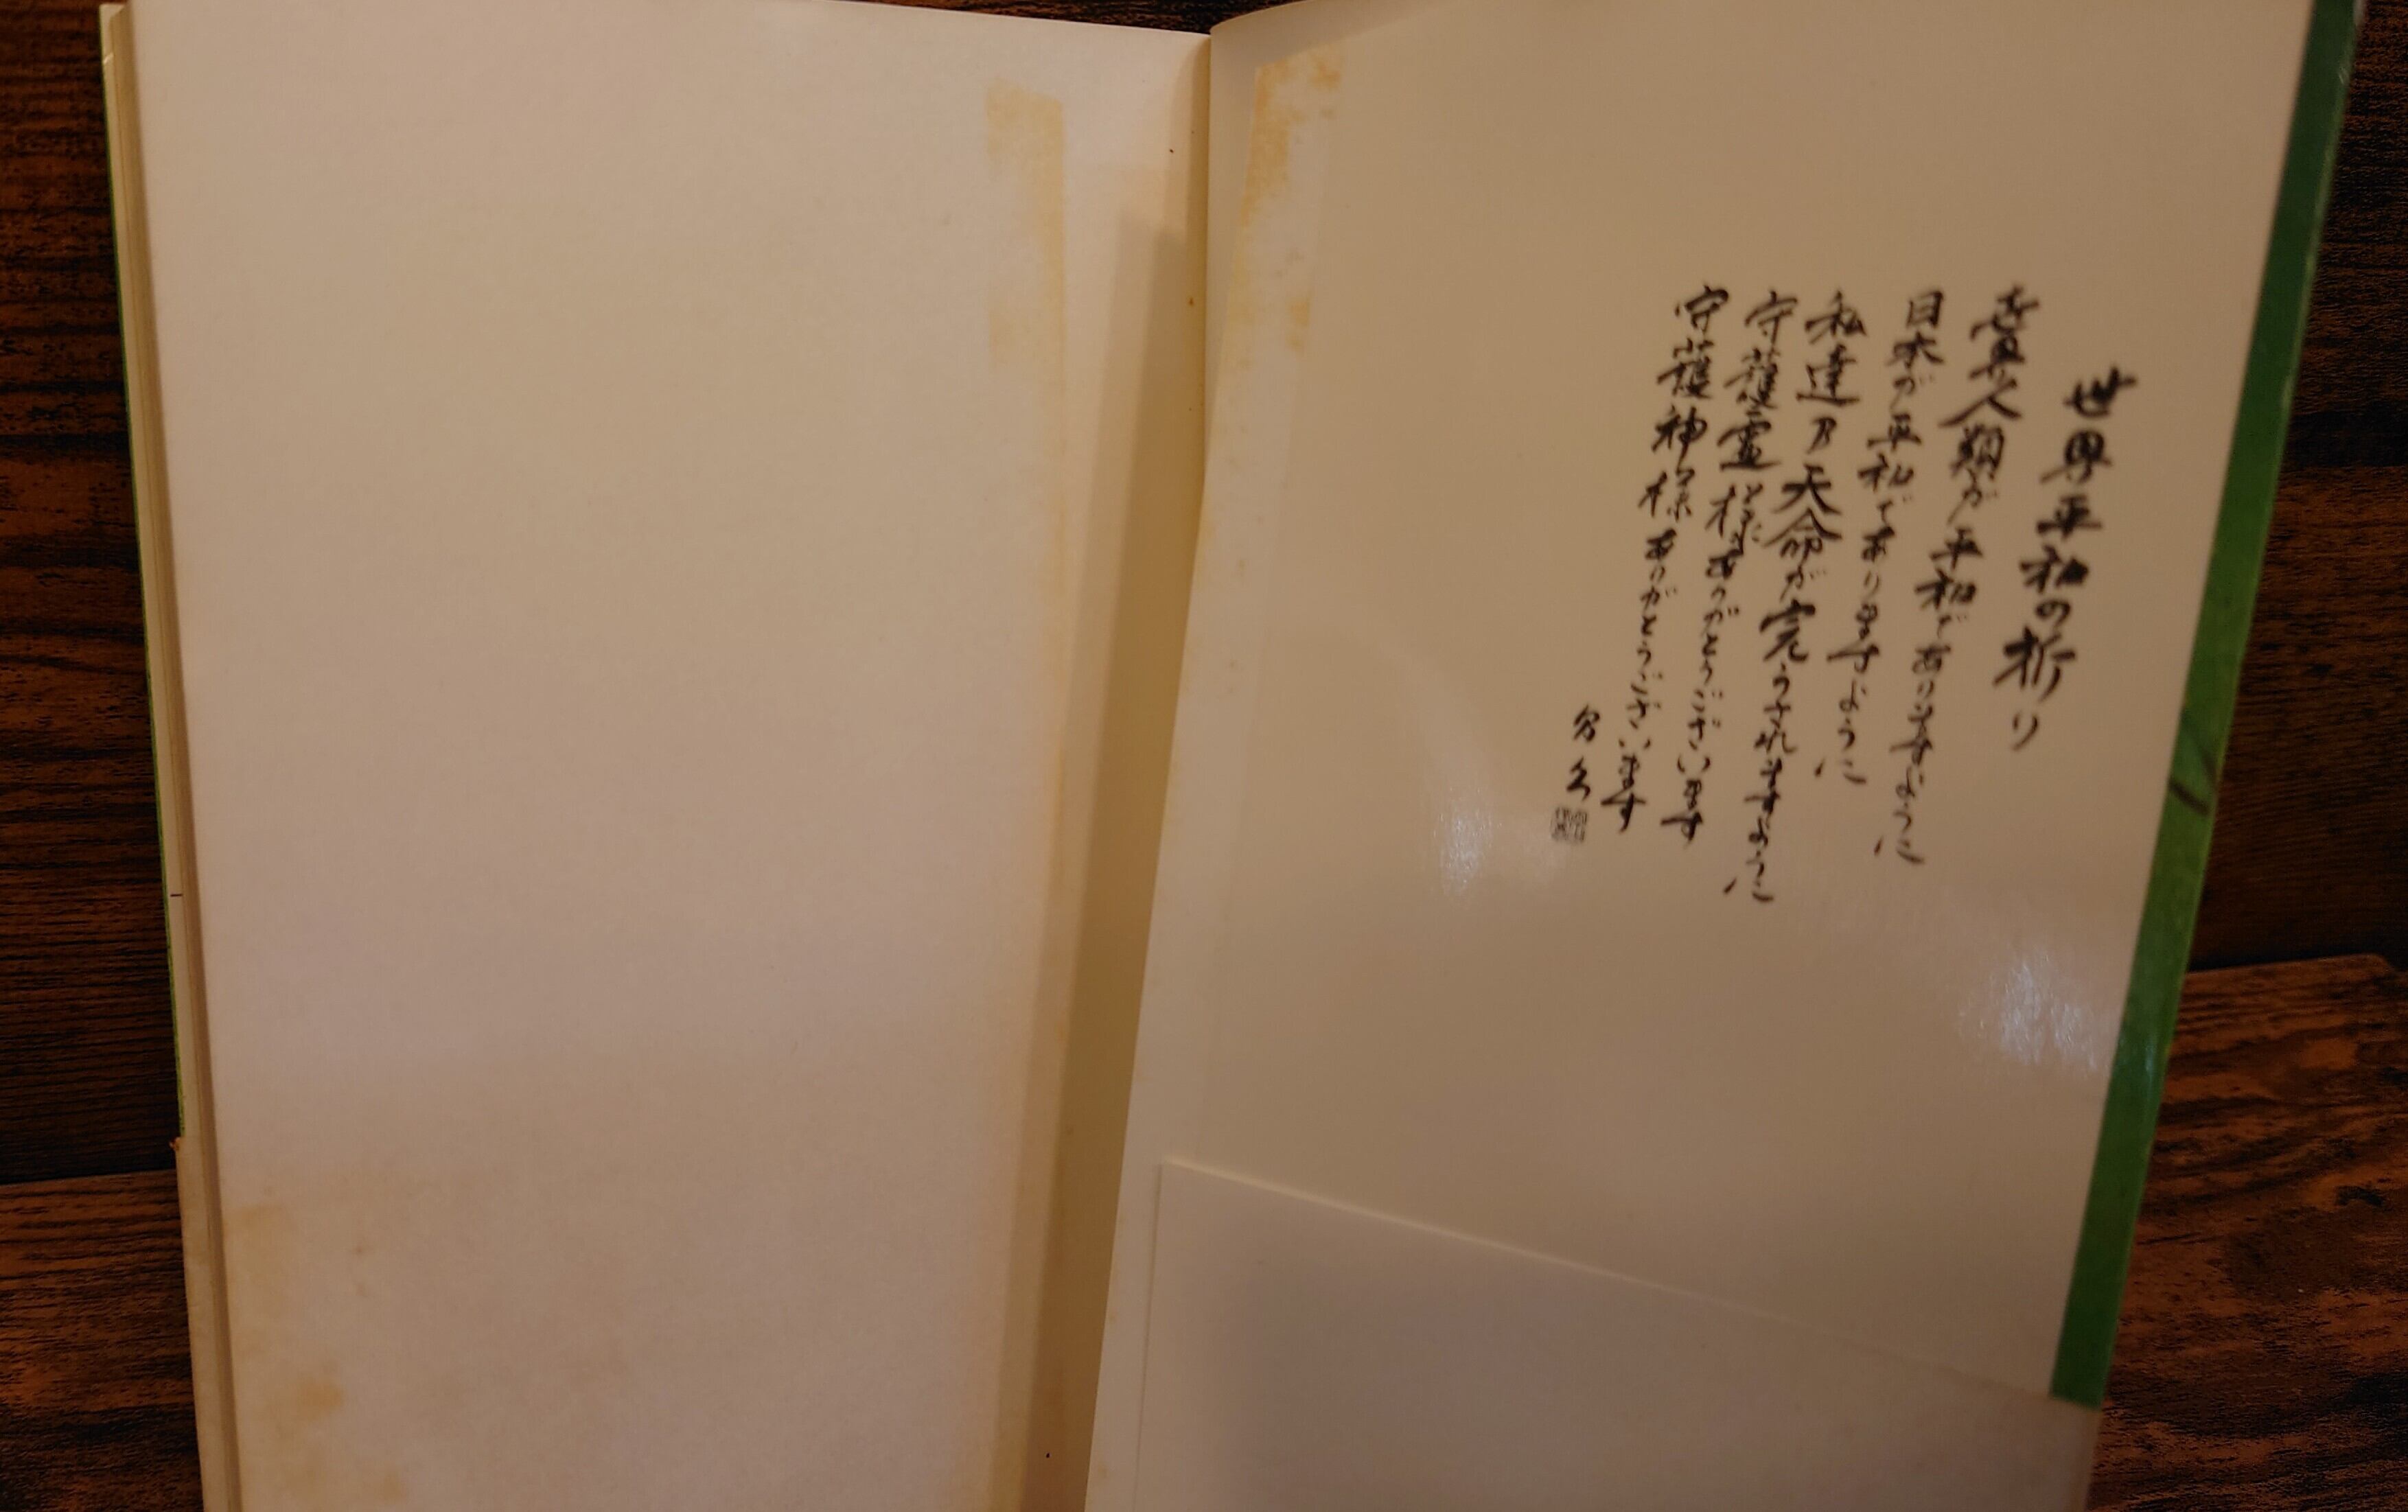 世界平和の祈り
世界人類が平和でありますように
日本が平和でありますように
私達の天命が完うされますように
守護霊様ありがとうございます
守護神様ありがとうございます
昌久